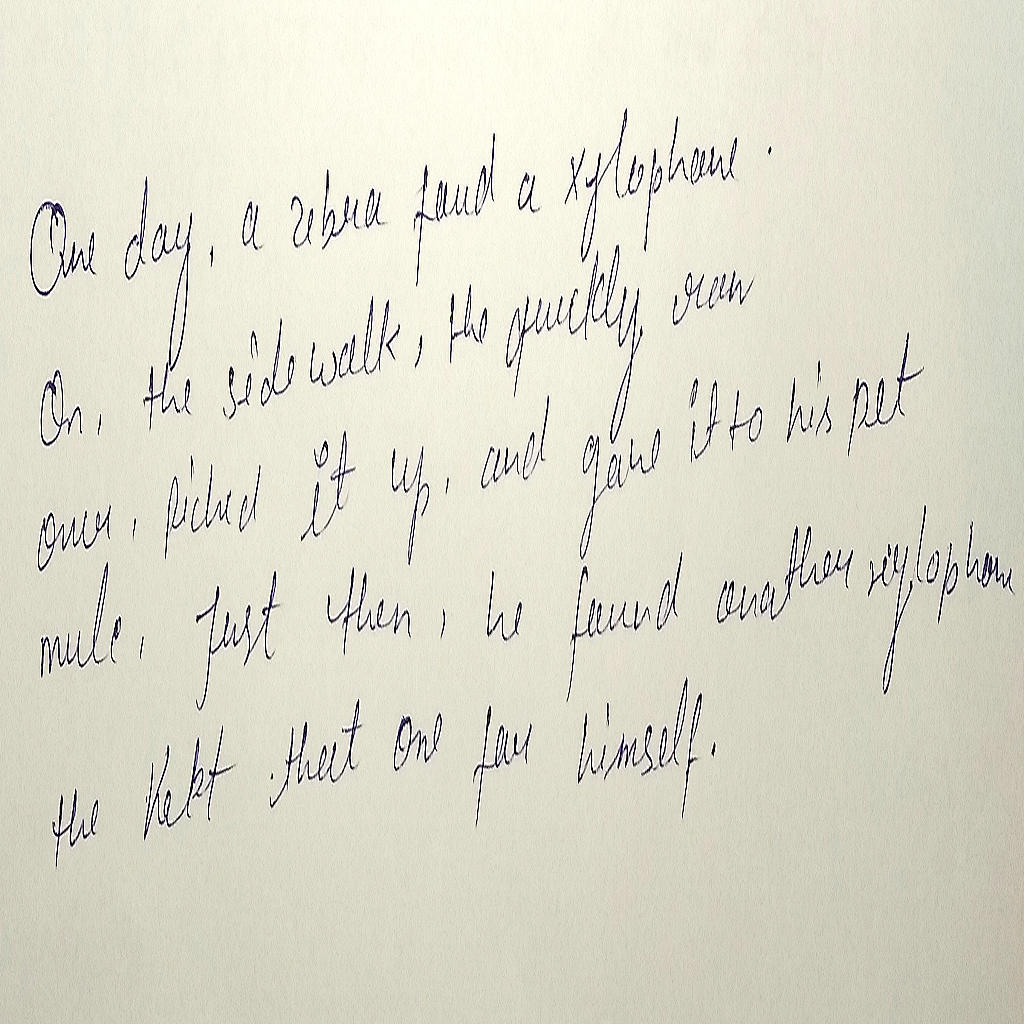 One day, a zebra faud a xylophone.
On, the sidewalk, the quickly ran
over, picked it up, and gave it to his pet
mule, Just then, he found another xylophone
the Kekt that one for himself.